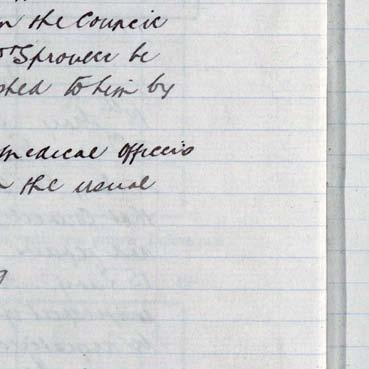 the Council
Sproule be
to him by
medical officers
the usual